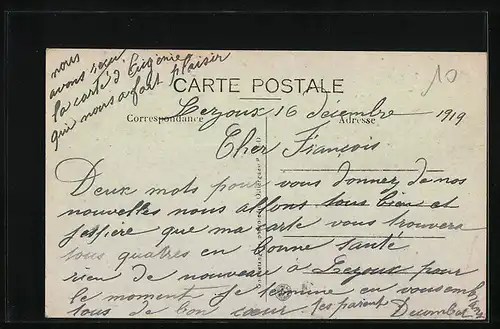 nous
avons reçu
la carte d'Eugénie
qui nous a fait plaisir
CARTE POSTALE
Lezoux 16 décembre 1919
Correspondance
Adresse
Cher François
Deux mots pour vous donner de nos
nouvelles nous allons tous bien et
jesspère que ma carte vous trouvera
tous quatres en bonne santé
rien de nouveaux à Lezoux pour
le moment je termine en vous
tous de bon cœur tes parent
10